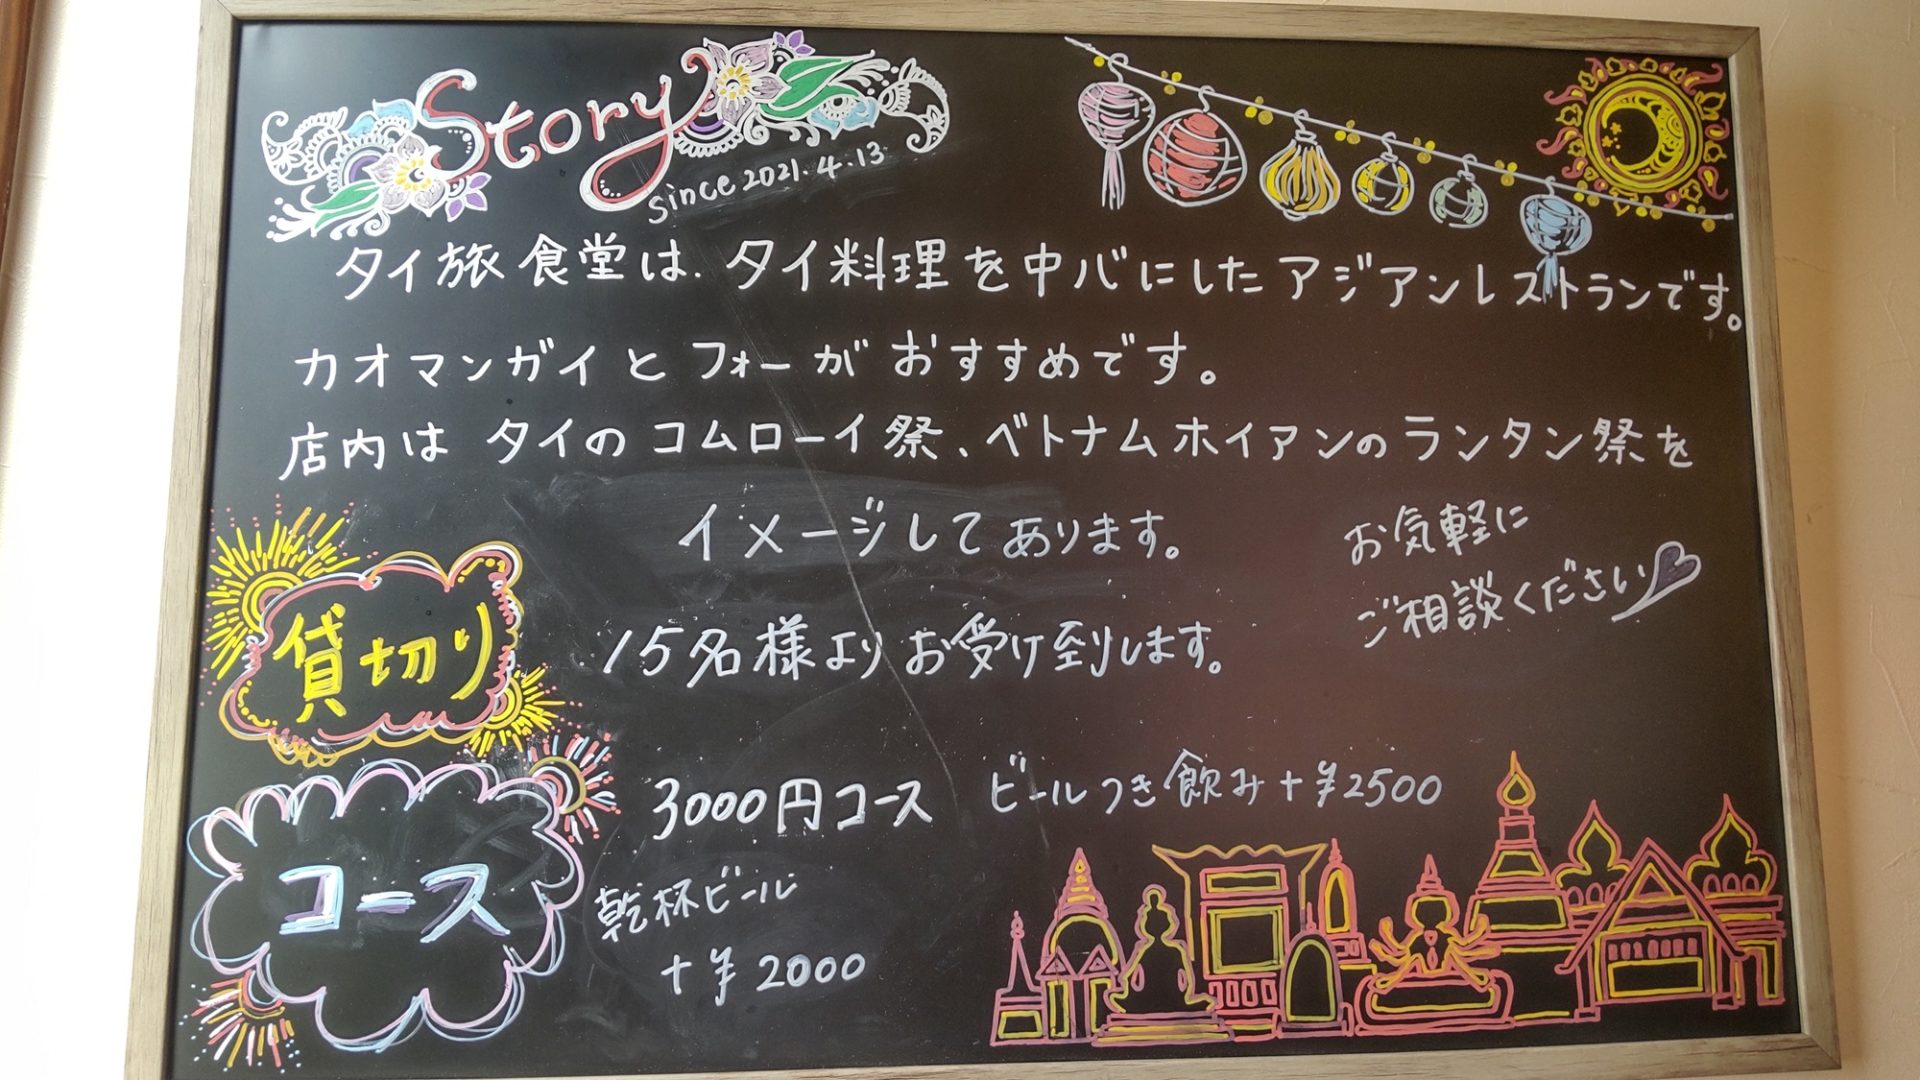 Story
since 2021.4.13
タイ旅食堂は、タイ料理を中心にしたアジアンレストランです。
カオマンガイとフォーがおすすめです。
店内はタイのコムローイ祭、ベトナムホイアンのランタン祭を
イメージしてあります。
お気軽に
ご相談ください
貸切り
15名様よりお受け致します。
コース
3000円コース ビールつき飲み+¥2500
乾杯ビール
+¥2000